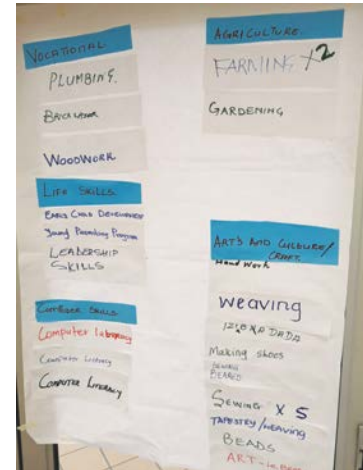 VOCATIONAL
PLUMBING.
BRICK
WOODWORK
LIFE SKILLS
EARLY CHILD DEVELOPMENT
Young Parenting Program
LEADERSHIP
SKILLS
COMPUTER SKILLS
Computer
Computer Literacy
COMPUTER LITERACY
AGRICULTURE
FARMING X2
GARDENING
ARTS AND CULTURE/
CRAFT.
Hand Work
weaving
DADA
Making shoes
SEWING X 5
TAPESTRY/WEAVING
BEADS
ART